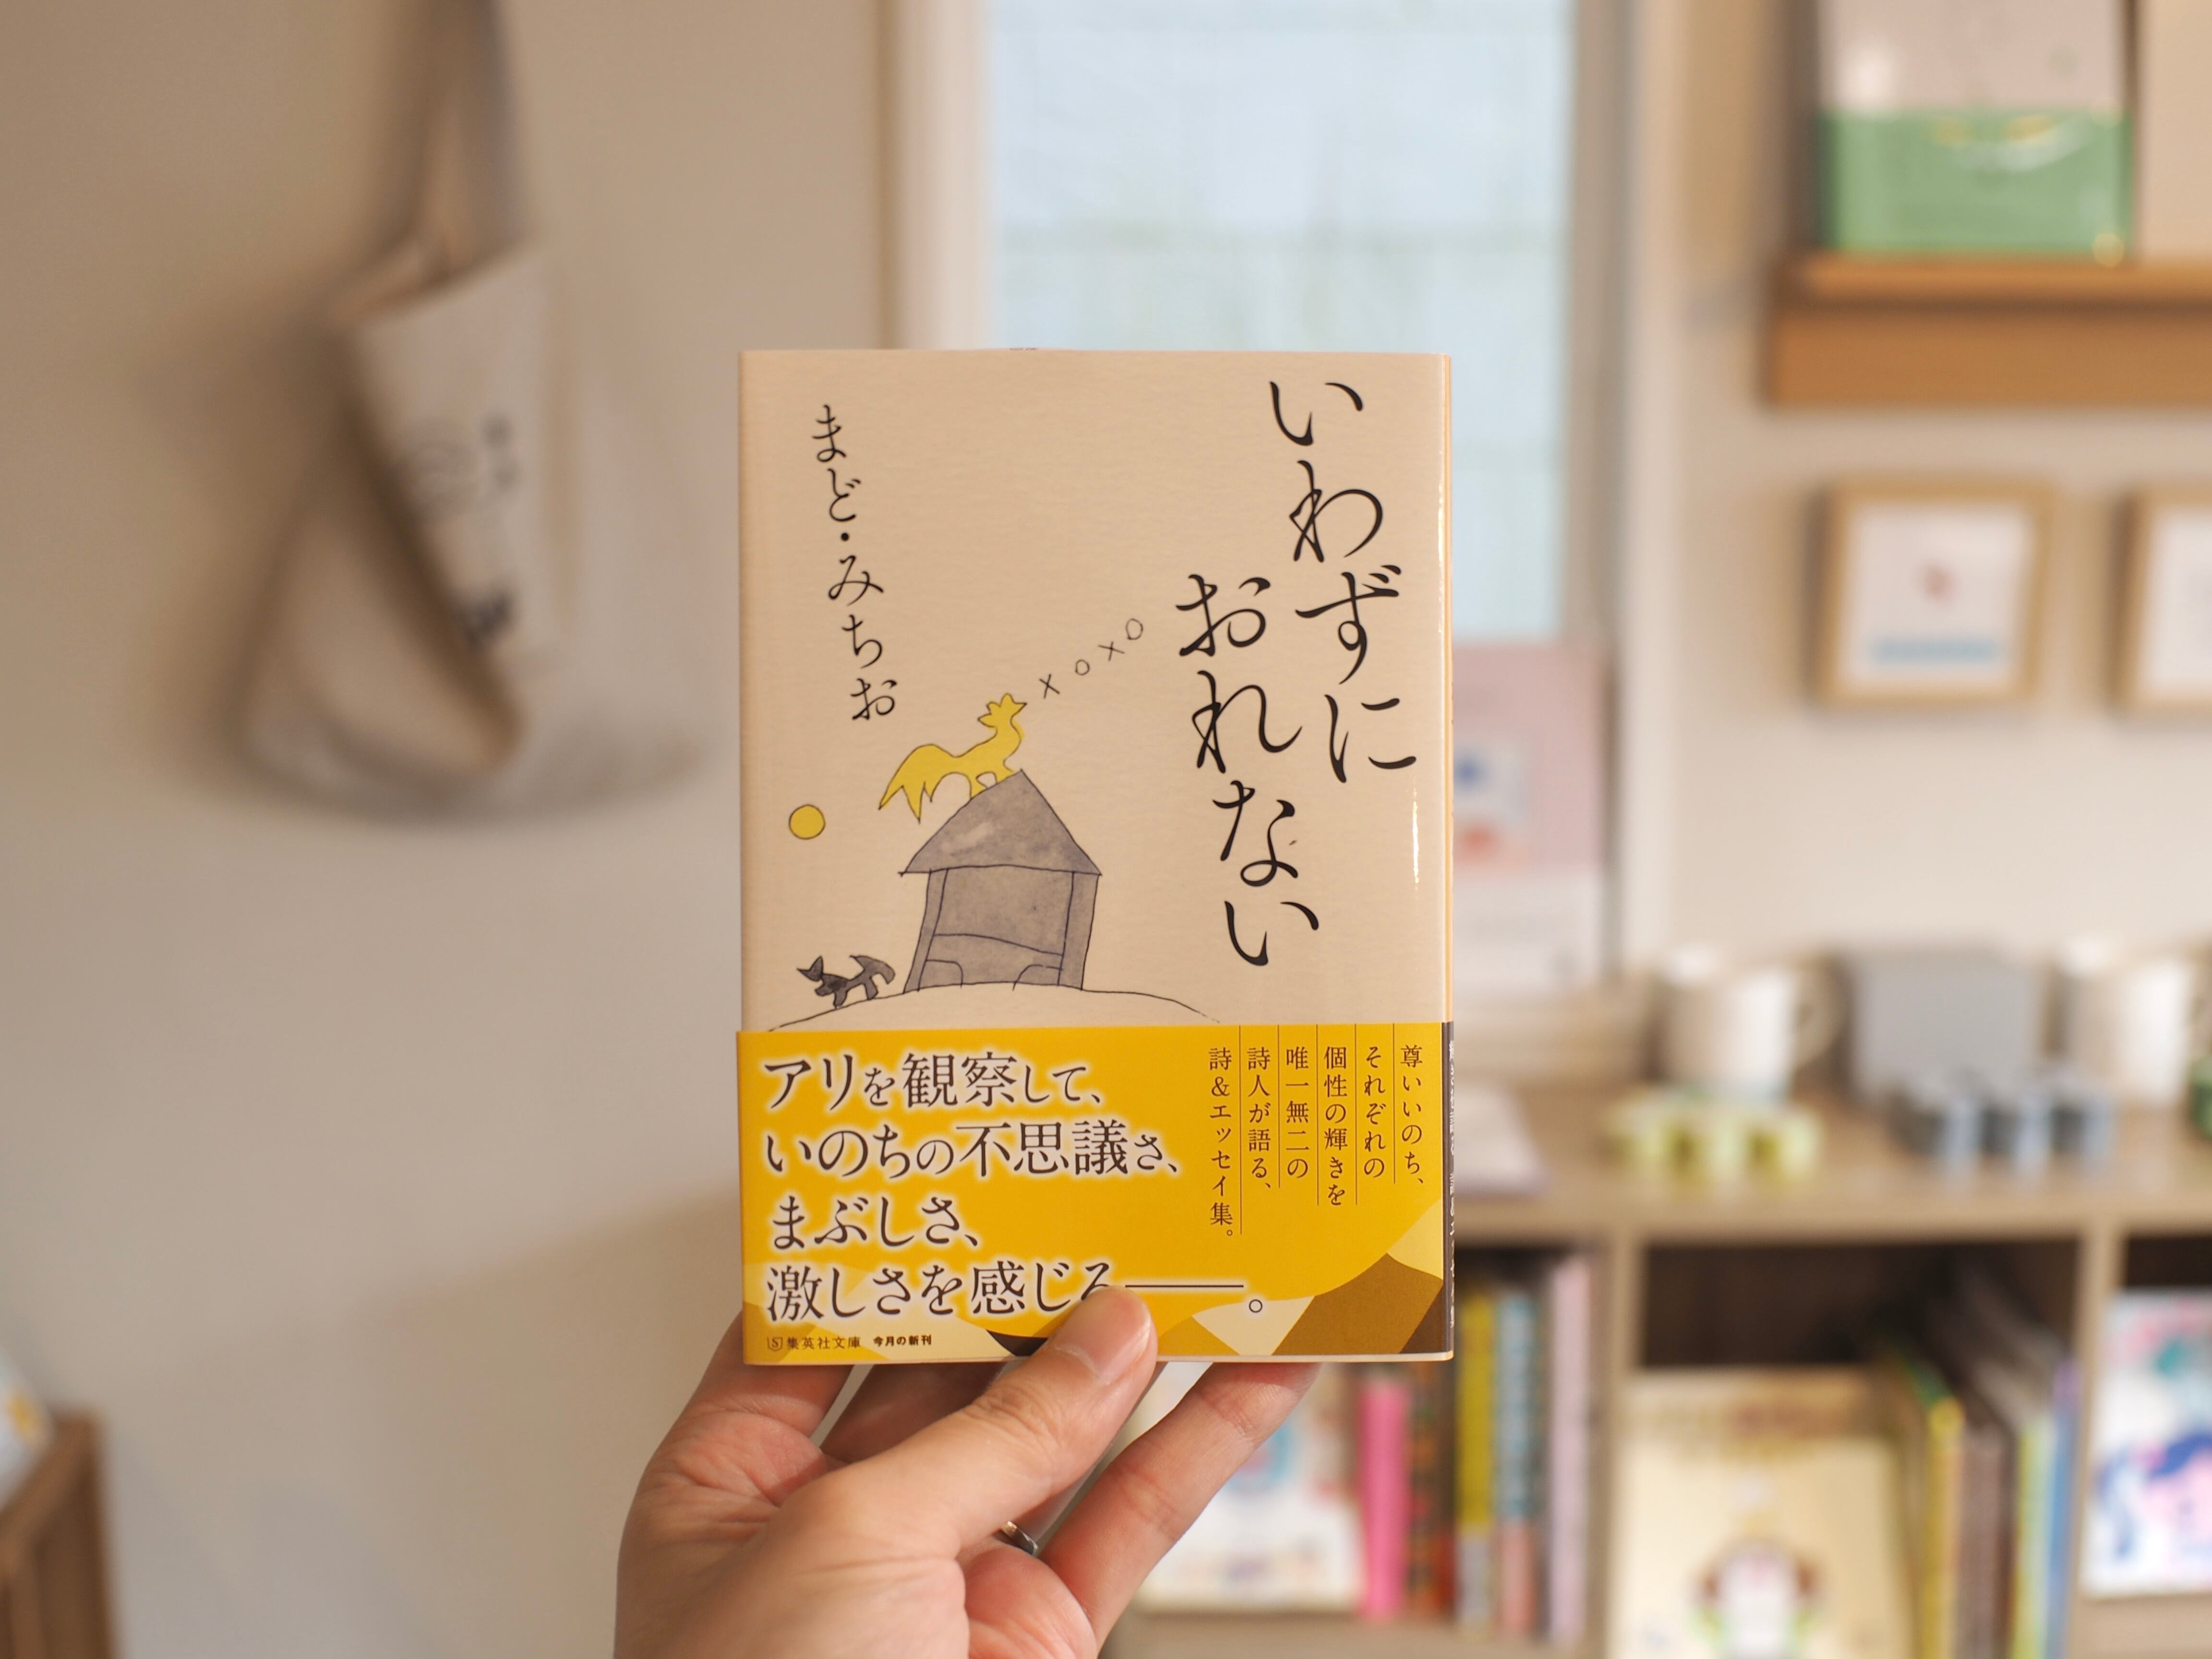 いわずに
おれない
まど・みちお
尊いいのち、
それぞれの
個性の輝きを
唯一無二の
詩人が語る、
詩&エッセイ集。
アリを観察して、
いのちの不思議さ、
まぶしさ、
激しさを感じる――。
集英社文庫 今月の新刊